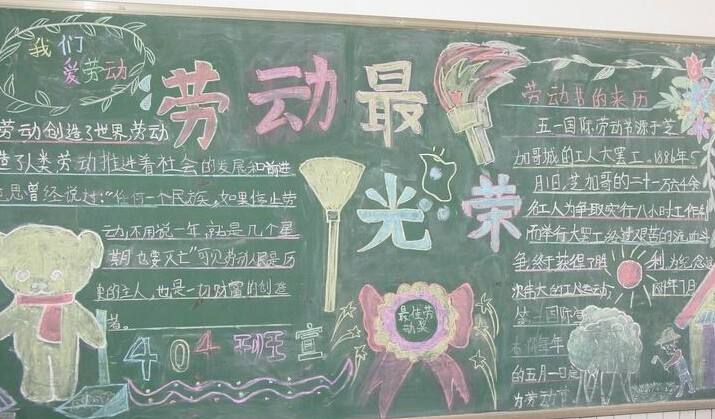 我们
爱劳动
劳动最
光荣
劳动创造了世界,劳动
造了人类劳动推进着社会的发展和前进
思曾经说过:"任何一个民族,如果停止劳
动,不用说一年,就是几个星
期也要灭亡"可见劳动人民是历
史的主人,也是一切财富的创造
者。
404班宣
最佳劳
动奖
劳动节的来历
五一国际劳动节源于芝
加哥城的工人大罢工.1886年5
月1日,芝加哥的二十一万六千余
名工人为争取实行八小时工作制
而举行大罢工经过艰苦的流血斗
争,终于获得了胜利为纪念这
次伟大的工人运动
国际
的五月一日定
为劳动节